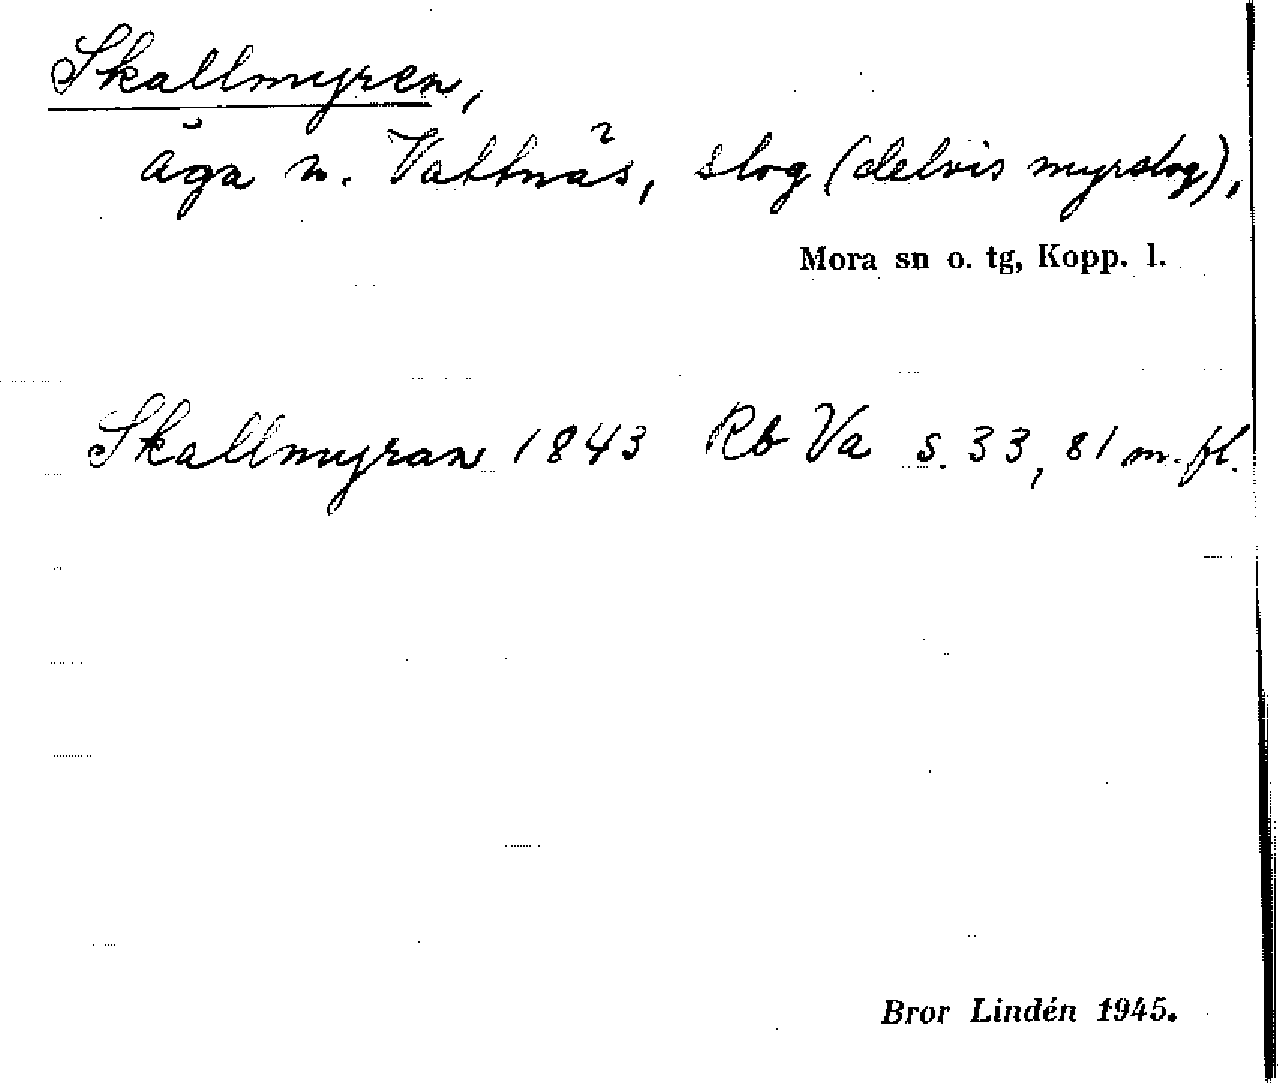 Skallmyren,
äga n. Vattnäs, slog (delvis myrslog),
Mora sn o. tg, Kopp. l.
Skallmyran 1843 Rb Va s. 33, 81 m. fl.
Bror Lindén 1945.